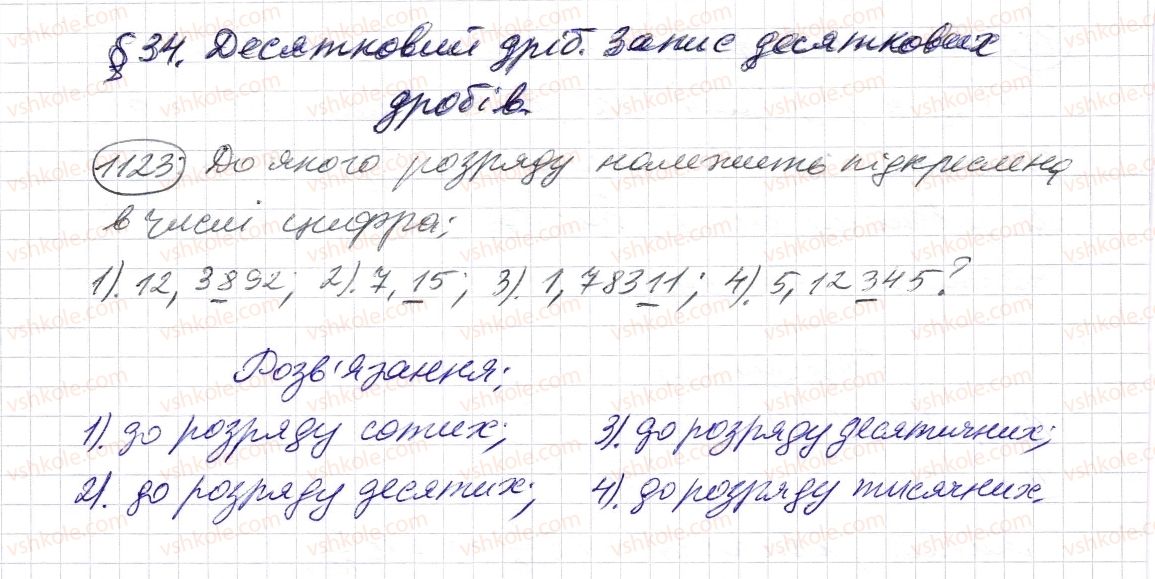 § 34. Десятковий дріб. Запис десяткових
дробів.
1123. До якого розряду належить підкреслена
в числі цифра:
1). 12,3892; 2). 7,15; 3). 1,78311; 4). 5,12345?
Розв'язання:
1). до розряду сотих; 3). до розряду десятичних;
2). до розряду десятих; 4). до розряду тисячних.